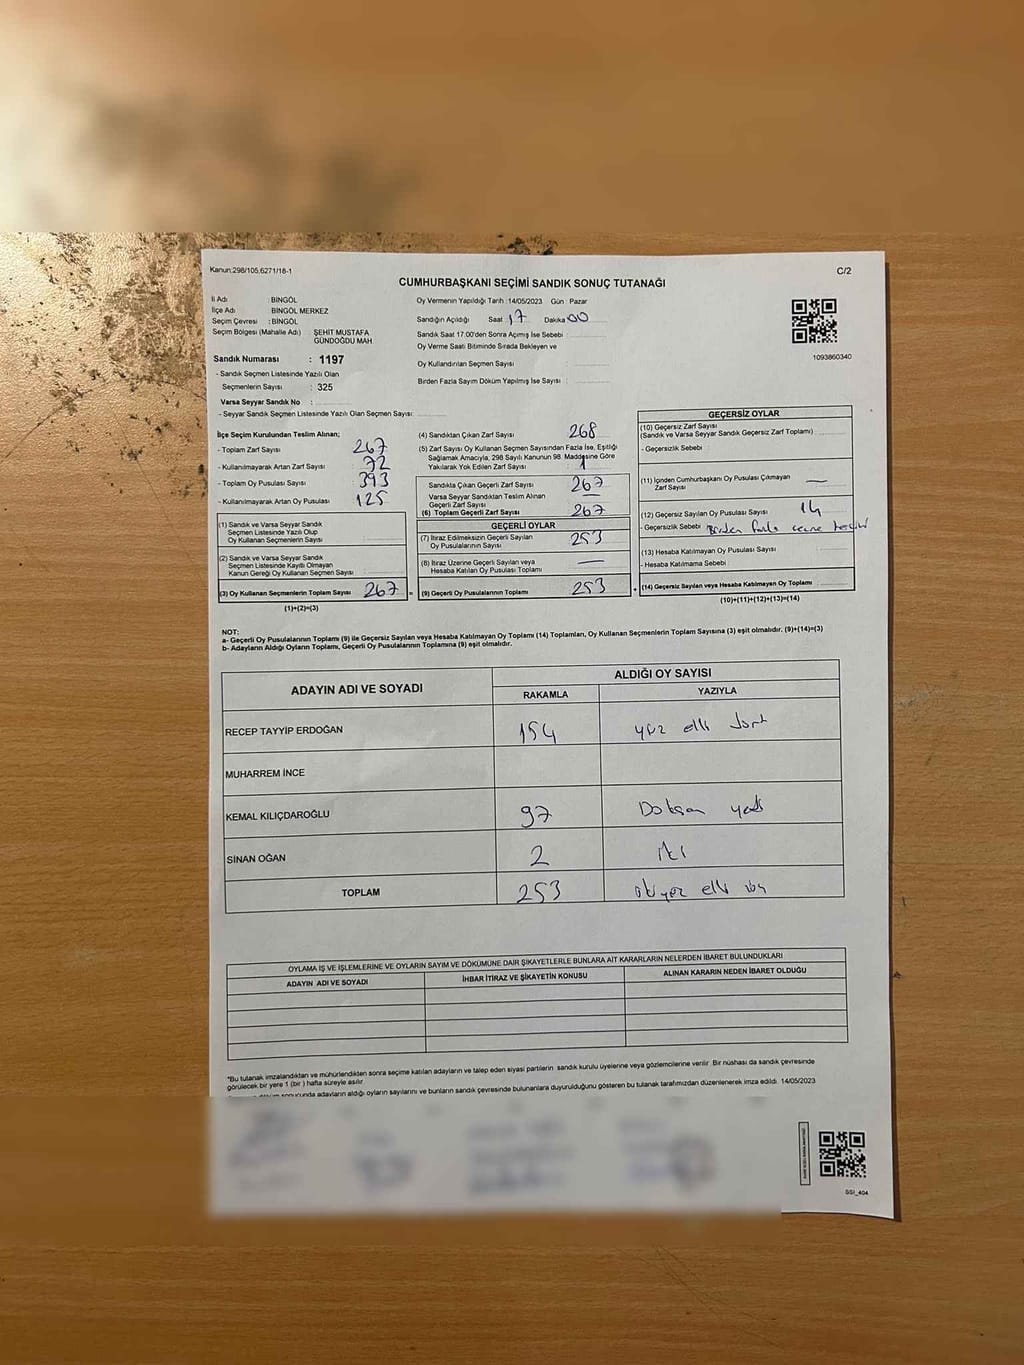 Kanun;298/105,6271/18-1
C/2
CUMHURBAŞKANI SEÇİMİ SANDIK SONUÇ TUTANAĞI
İl Adı : BİNGÖL
İlçe Adı : BİNGÖL MERKEZ
Seçim Çevresi : BİNGÖL
Seçim Bölgesi (Mahalle Adı) ŞEHİT MUSTAFA GÜNDOĞDU MAH
Sandık Numarası : 1197
- Sandık Seçmen Listesinde Yazılı Olan
Seçmenlerin Sayısı : 325
Varsa Seyyar Sandık No :
- Seyyar Sandık Seçmen Listesinde Yazılı Olan Seçmen Sayısı:
Oy Vermenin Yapıldığı Tarih :14/05/2023 Gün : Pazar
Sandığın Açıldığı Saat 17 Dakika 00
Sandık Saat 17:00'den Sonra Açımış İse Sebebi :
Oy Verme Saati Bitiminde Sırada Bekleyen ve
Oy Kullandırılan Seçmen Sayısı :
Birden Fazla Sayım Döküm Yapılmış İse Sayısı :
1093860340
İlçe Seçim Kurulundan Teslim Alınan;
- Toplam Zarf Sayısı : 267
- Kullanılmayarak Artan Zarf Sayısı : 72
- Toplam Oy Pusulası Sayısı : 393
- Kullanılmayarak Artan Oy Pusulası : 125
(1) Sandık ve Varsa Seyyar Sandık
Seçmen Listesinde Yazılı Olup
Oy Kullanan Seçmenlerin Sayısı :
(2) Sandık ve Varsa Seyyar Sandık
Seçmen Listesinde Kayıtlı Olmayan
Kanun Gereği Oy Kullanan Seçmen Sayısı :
(3) Oy Kullanan Seçmenlerin Toplam Sayısı : 267 =
(1)+(2)=(3)
(4) Sandıktan Çıkan Zarf Sayısı : 268
(5) Zarf Sayısı Oy Kullanan Seçmen Sayısından Fazla İse, Eşitliği
Sağlamak Amacıyla, 298 Sayılı Kanunun 98. Maddesine Göre
Yakılarak Yok Edilen Zarf Sayısı : 1
Sandıkta Çıkan Geçerli Zarf Sayısı : 267
Varsa Seyyar Sandıktan Teslim Alınan
Geçerli Zarf Sayısı : —
(6) Toplam Geçerli Zarf Sayısı : 267
GEÇERLİ OYLAR
(7) İtiraz Edilmeksizin Geçerli Sayılan
Oy Pusulalarının Sayısı : 253
(8) İtiraz Üzerine Geçerli Sayılan veya
Hesaba Katılan Oy Pusulası Toplamı : —
(9) Geçerli Oy Pusulalarının Toplamı : 253 +
GEÇERSİZ OYLAR
(10) Geçersiz Zarf Sayısı
(Sandık ve Varsa Seyyar Sandık Geçersiz Zarf Toplamı) :
- Geçersizlik Sebebi :
(11) İçinden Cumhurbaşkanı Oy Pusulası Çıkmayan
Zarf Sayısı : —
(12) Geçersiz Sayılan Oy Pusulası Sayısı : 14
- Geçersizlik Sebebi : Birden fazla
(13) Hesaba Katılmayan Oy Pusulası Sayısı :
- Hesaba Katılmama Sebebi :
(14) Geçersiz Sayılan veya Hesaba Katılmayan Oy Toplamı :
(10)+(11)+(12)+(13)=(14)
NOT:
a- Geçerli Oy Pusulalarının Toplamı (9) ile Geçersiz Sayılan veya Hesaba Katılmayan Oy Toplamı (14) Toplamları, Oy Kullanan Seçmenlerin Toplam Sayısına (3) eşit olmalıdır. (9)+(14)=(3)
b- Adayların Aldığı Oyların Toplamı, Geçerli Oy Pusulalarının Toplamına (9) eşit olmalıdır.
ADAYIN ADI VE SOYADI
ALDIĞI OY SAYISI
RAKAMLA YAZIYLA
RECEP TAYYİP ERDOĞAN 154 yüz elli dört
MUHARREM İNCE
KEMAL KILIÇDAROĞLU 97 Doksan yedi
SİNAN OĞAN 2 iki
TOPLAM 253 ikiyüz elli üç
OYLAMA İŞ VE İŞLEMLERİNE VE OYLARIN SAYIM VE DÖKÜMÜNE DAİR ŞİKAYETLERLE BUNLARA AİT KARARLARIN NELERDEN İBARET BULUNDUKLARI
ADAYIN ADI VE SOYADI İHBAR İTİRAZ VE ŞİKAYETİN KONUSU ALINAN KARARIN NEDEN İBARET OLDUĞU
*Bu tutanak imzalandıktan ve mühürlendikten sonra seçime katılan adayların ve talep eden siyasi partilerin sandık kurulu üyelerine veya gözlemcilerine verilir. Bir nüshası da sandık çevresinde
görülecek bir yere 1 (bir ) hafta süreyle asılır.
sonucunda adayların aldığı oyların sayılarını ve bunların sandık çevresinde bulunanlara duyurulduğunu gösteren bu tutanak tarafımızdan düzenlenerek imza edildi. 14/05/2023
SSI_404